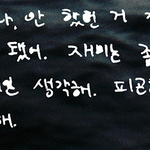 나, 안 했던 거 
됐어. 재미는 좀
생각해. 피곤
해.